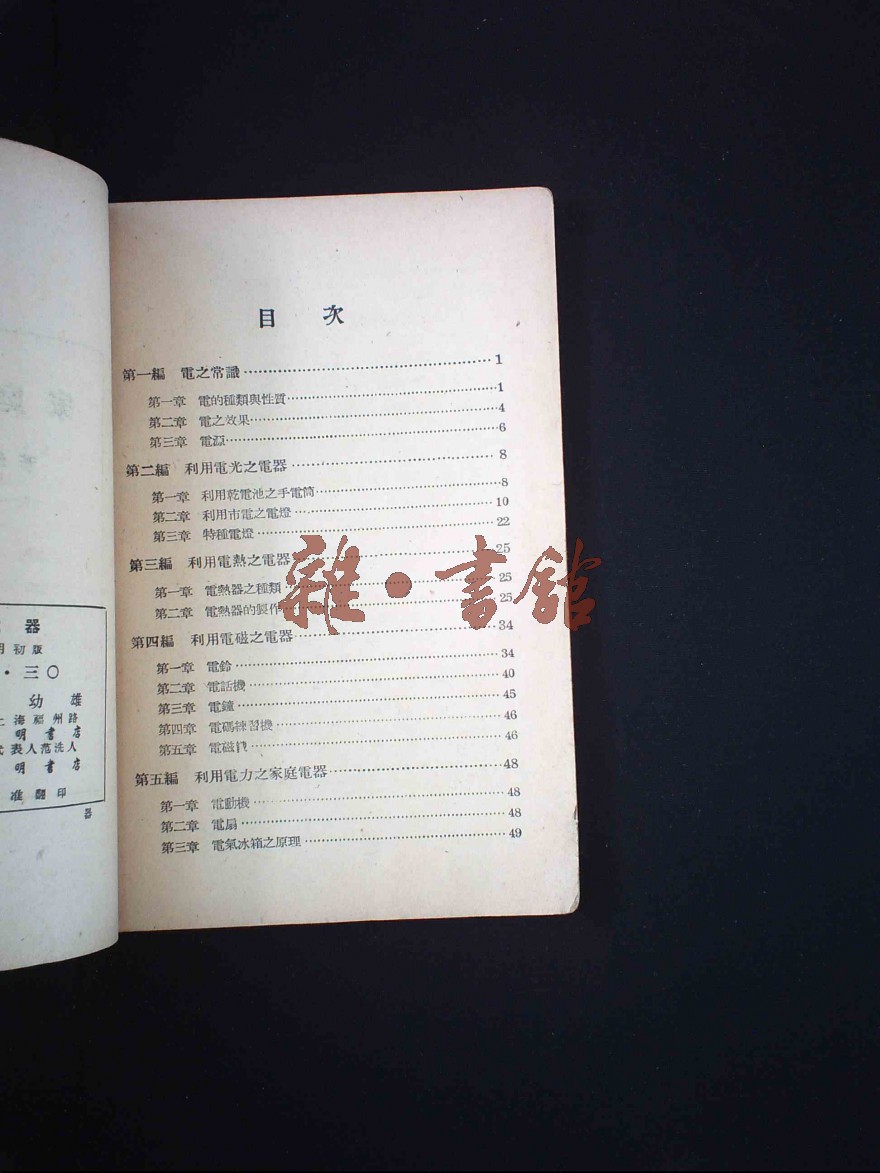 目 次
第一編 電之常識 1
第一章 電的種類與性質 1
第二章 電之效果 4
第三章 電源 6
第二編 利用電光之電器 8
第一章 利用乾電池之手電筒 8
第二章 利用市電之電燈 10
第三章 特種電燈 22
第三編 利用電熱之電器 25
第一章 電熱器之種類 25
第二章 電熱器的製作 25
第四編 利用電磁之電器 34
第一章 電鈴 34
第二章 電話機 40
第三章 電鐘 45
第四章 電碼練習機 46
第五章 電磁 46
第五編 利用電力之家庭電器 48
第一章 電動機 48
第二章 電扇 48
第三章 電氣冰箱之原理 49
雜·書館
器
初版
·三〇
幼雄
上海福州路
明書店
代表人范洗人
明書店
准翻印
器